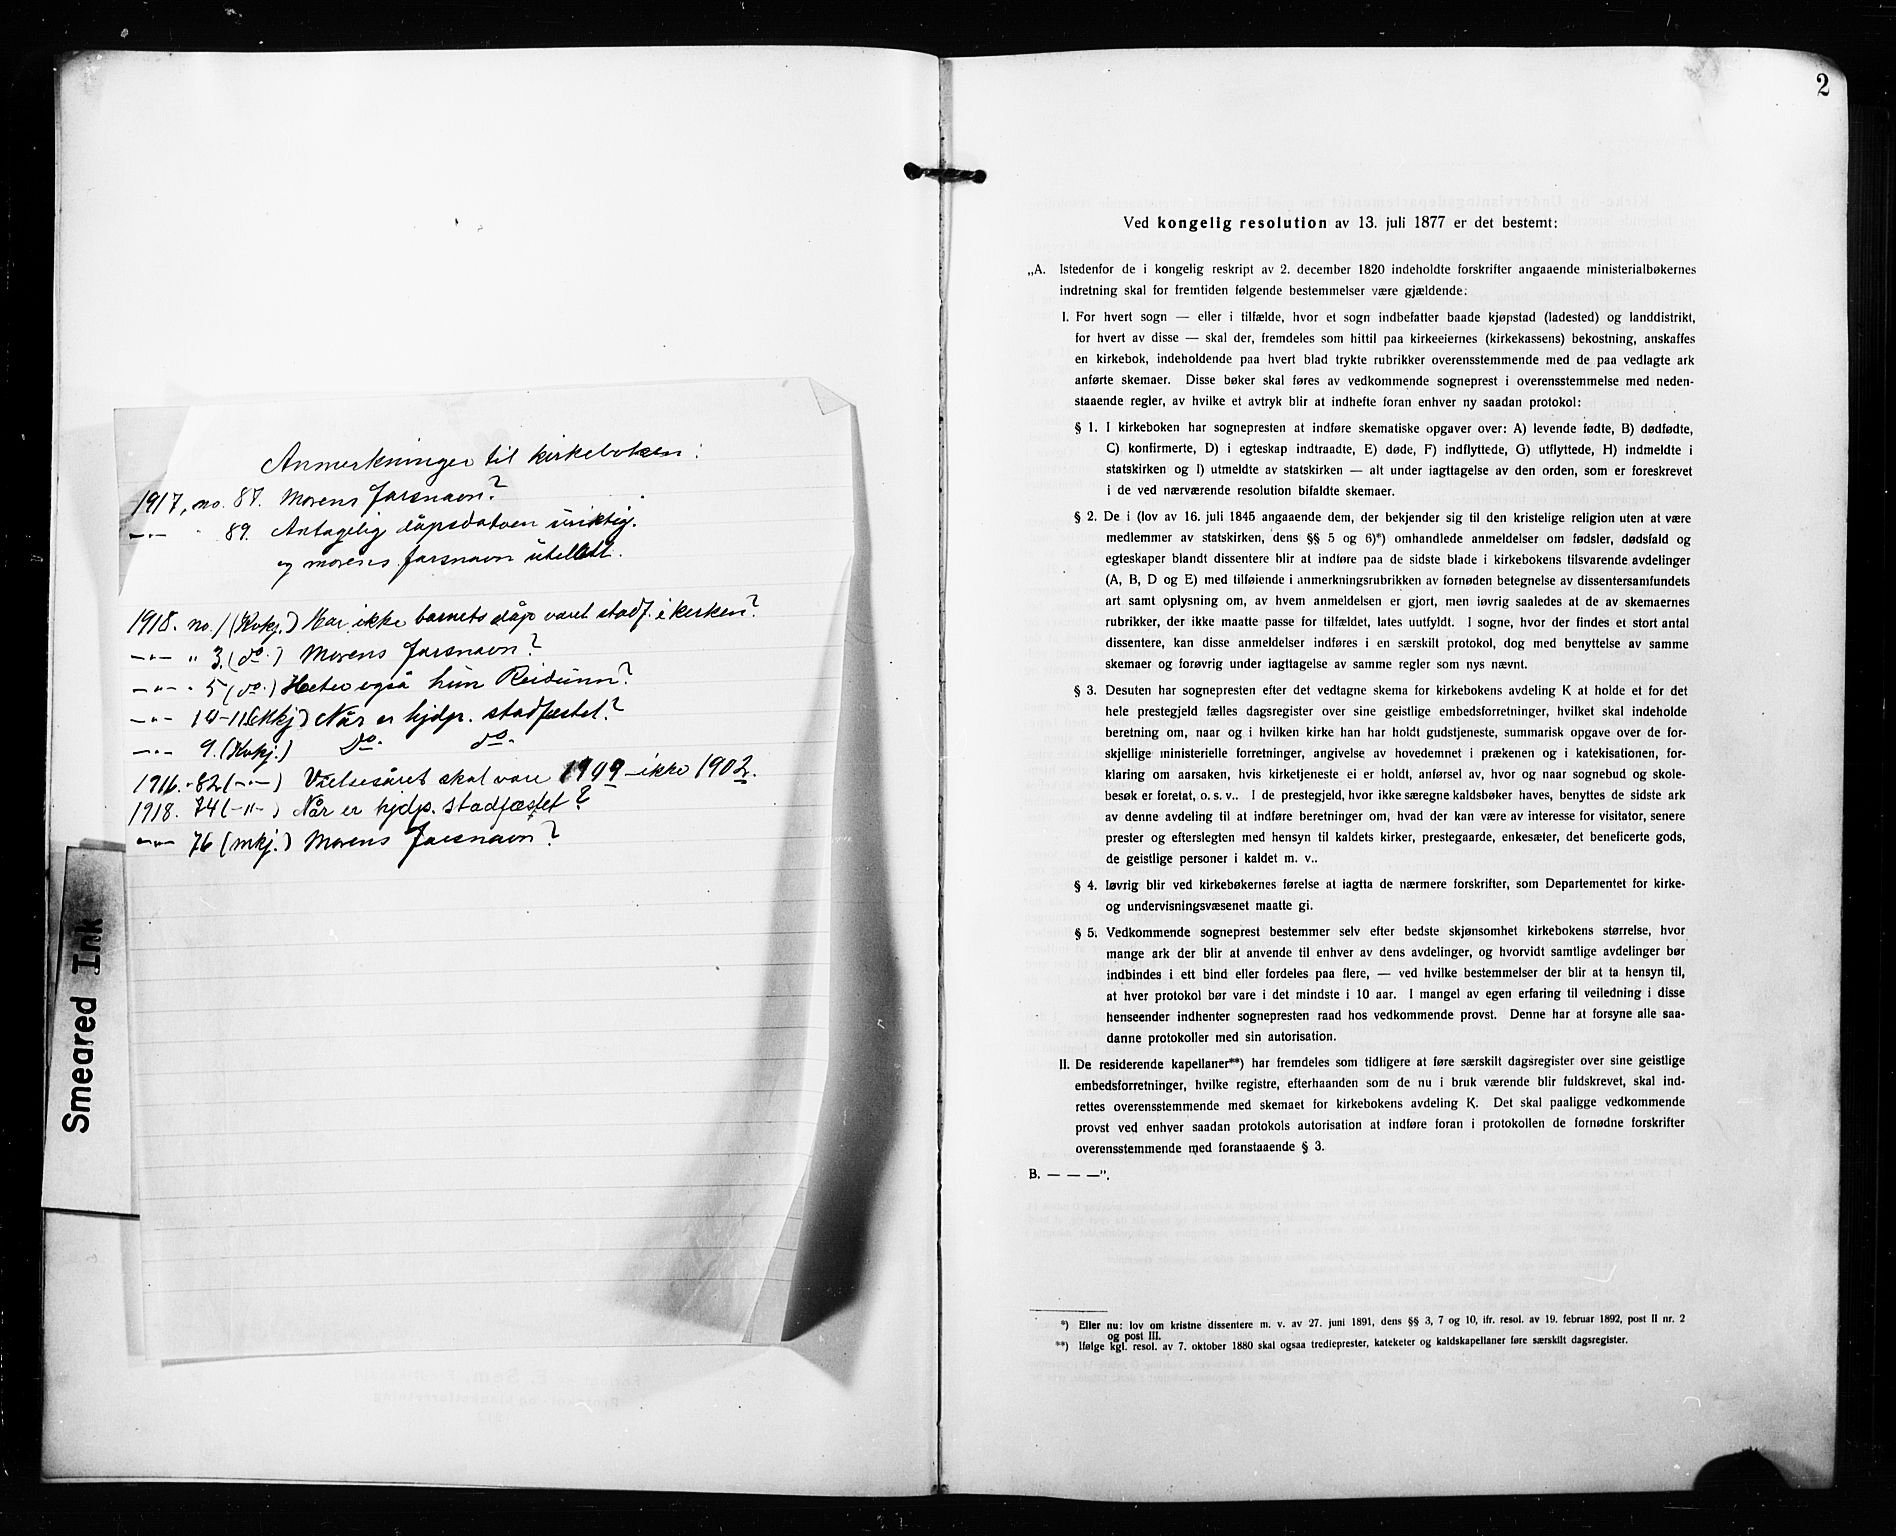 Anmerkninger til kirkeboken:
1917, no. 87. Morens farsnavn?
—"— " 89. Antagelig dåpsdatoen uriktig.
og morens farsnavn utelatt.
1918. no. 1 (Kvkj.) Har ikke barnets dåp været stadf. i kirken?
—"— " 3. (do.) Morens farsnavn?
—"— " 5 (do.) Heter også hun Reidunn?
—"— 10-11 (Mkj) Når er hjdp. stadfæstet?
—"— 9. (Kvkj.) do. do.
1916. 82 (—"—) Vielsesåret skal være 1909 - ikke 1902.
1918. 74 (—"—) Når er hjdp. stadfæstet?
—"— 76 (Mkj.) Morens farsnavn?
Smeared Ink
2
Ved kongelig resolution av 13. juli 1877 er det bestemt:
„A. Istedenfor de i kongelig reskript av 2. december 1820 indeholdte forskrifter angaaende ministerialbøkernes
indretning skal for fremtiden følgende bestemmelser være gjældende:
I. For hvert sogn — eller i tilfælde, hvor et sogn indbefatter baade kjøpstad (ladested) og landdistrikt,
for hvert av disse — skal der, fremdeles som hittil paa kirkeeiernes (kirkekassens) bekostning, anskaffes
en kirkebok, indeholdende paa hvert blad trykte rubrikker overensstemmende med de paa vedlagte ark
anførte skemaer. Disse bøker skal føres av vedkommende sogneprest i overensstemmelse med neden-
staaende regler, av hvilke et avtryk blir at indhefte foran enhver ny saadan protokol:
§ 1. I kirkeboken har sognepresten at indføre skematiske opgaver over: A) levende fødte, B) dødfødte,
C) konfirmerte, D) i egteskap indtraadte, E) døde, F) indflyttede, G) utflyttede, H) indmeldte i
statskirken og I) utmeldte av statskirken — alt under iagttagelse av den orden, som er foreskrevet
i de ved nærværende resolution bifaldte skemaer.
§ 2. De i (lov av 16. juli 1845 angaaende dem, der bekjender sig til den kristelige religion uten at være
medlemmer av statskirken, dens §§ 5 og 6)*) omhandlede anmeldelser om fødsler, dødsfald og
egteskaper blandt dissentere blir at indføre paa de sidste blade i kirkebokens tilsvarende avdelinger
(A, B, D og E) med tilføiende i anmerkningsrubrikken av fornøden betegnelse av dissentersamfundets
art samt oplysning om, av hvem anmeldelsen er gjort, men iøvrig saaledes at de av skemaernes
rubrikker, der ikke maatte passe for tilfældet, lates uutfyldt. I sogne, hvor der findes et stort antal
dissentere, kan disse anmeldelser indføres i en særskilt protokol, dog med benyttelse av samme
skemaer og forøvrig under iagttagelse av samme regler som nys nævnt.
§ 3. Desuten har sognepresten efter det vedtagne skema for kirkebokens avdeling K at holde et for det
hele prestegjeld fælles dagsregister over sine geistlige embedsforretninger, hvilket skal indeholde
beretning om, naar og i hvilken kirke han har holdt gudstjeneste, summarisk opgave over de for-
skjellige ministerielle forretninger, angivelse av hovedemnet i prækenen og i katekisationen, for-
klaring om aarsaken, hvis kirketjeneste ei er holdt, anførsel av, hvor og naar sognebud og skole-
besøk er foretat, o. s. v.. I de prestegjeld, hvor ikke særegne kaldsbøker haves, benyttes de sidste ark
av denne avdeling til at indføre beretninger om, hvad der kan være av interesse for visitator, senere
prester og efterslegten med hensyn til kaldets kirker, prestegaarde, enkesæter, det beneficerte gods,
de geistlige personer i kaldet m. v..
§ 4. Iøvrig blir ved kirkebøkernes førelse at iagtta de nærmere forskrifter, som Departementet for kirke-
og undervisningsvæsenet maatte gi.
§ 5. Vedkommende sogneprest bestemmer selv efter bedste skjønsomhet kirkebokens størrelse, hvor
mange ark der blir at anvende til enhver av dens avdelinger, og hvorvidt samtlige avdelinger bør
indbindes i ett bind eller fordeles paa flere, — ved hvilke bestemmelser der blir at ta hensyn til,
at hver protokol bør vare i det mindste i 10 aar. I mangel av egen erfaring til veiledning i disse
henseender indhenter sognepresten raad hos vedkommende provst. Denne har at forsyne alle saa-
danne protokoller med sin autorisation.
II. De residerende kapellaner**) har fremdeles som tidligere at føre særskilt dagsregister over sine geistlige
embedsforretninger, hvilke registre, efterhaanden som de nu i bruk værende blir fuldskrevet, skal ind-
rettes overensstemmende med skemaet for kirkebokens avdeling K. Det skal paaligge vedkommende
provst ved enhver saadan protokols autorisation at indføre foran i protokollen de fornødne forskrifter
overensstemmende med foranstaaende § 3.
B. — — —”.
*) Eller nu: lov om kristne dissentere m. v. av 27. juni 1891, dens §§ 3, 7 og 10, ifr. resol. av 19. februar 1892, post II nr. 2
og post III.
**) Ifølge kgl. resol. av 7. oktober 1880 skal ogsaa tredieprester, kateketer og kaldskapellaner føre særskilt dagsregister.